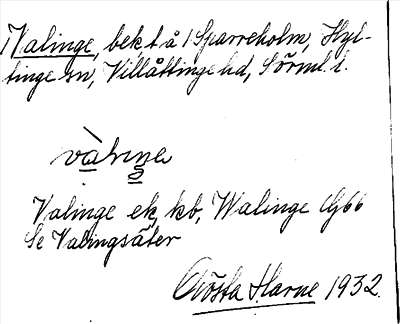 Valinge, bek. t. å / Sparreholm, Hyl-
tinge sn, Villåttinge hd, Sörml. l.
Valinge ek, kb, Walinge Gj66
Se Valingsäter
Gösta Harne 1932.